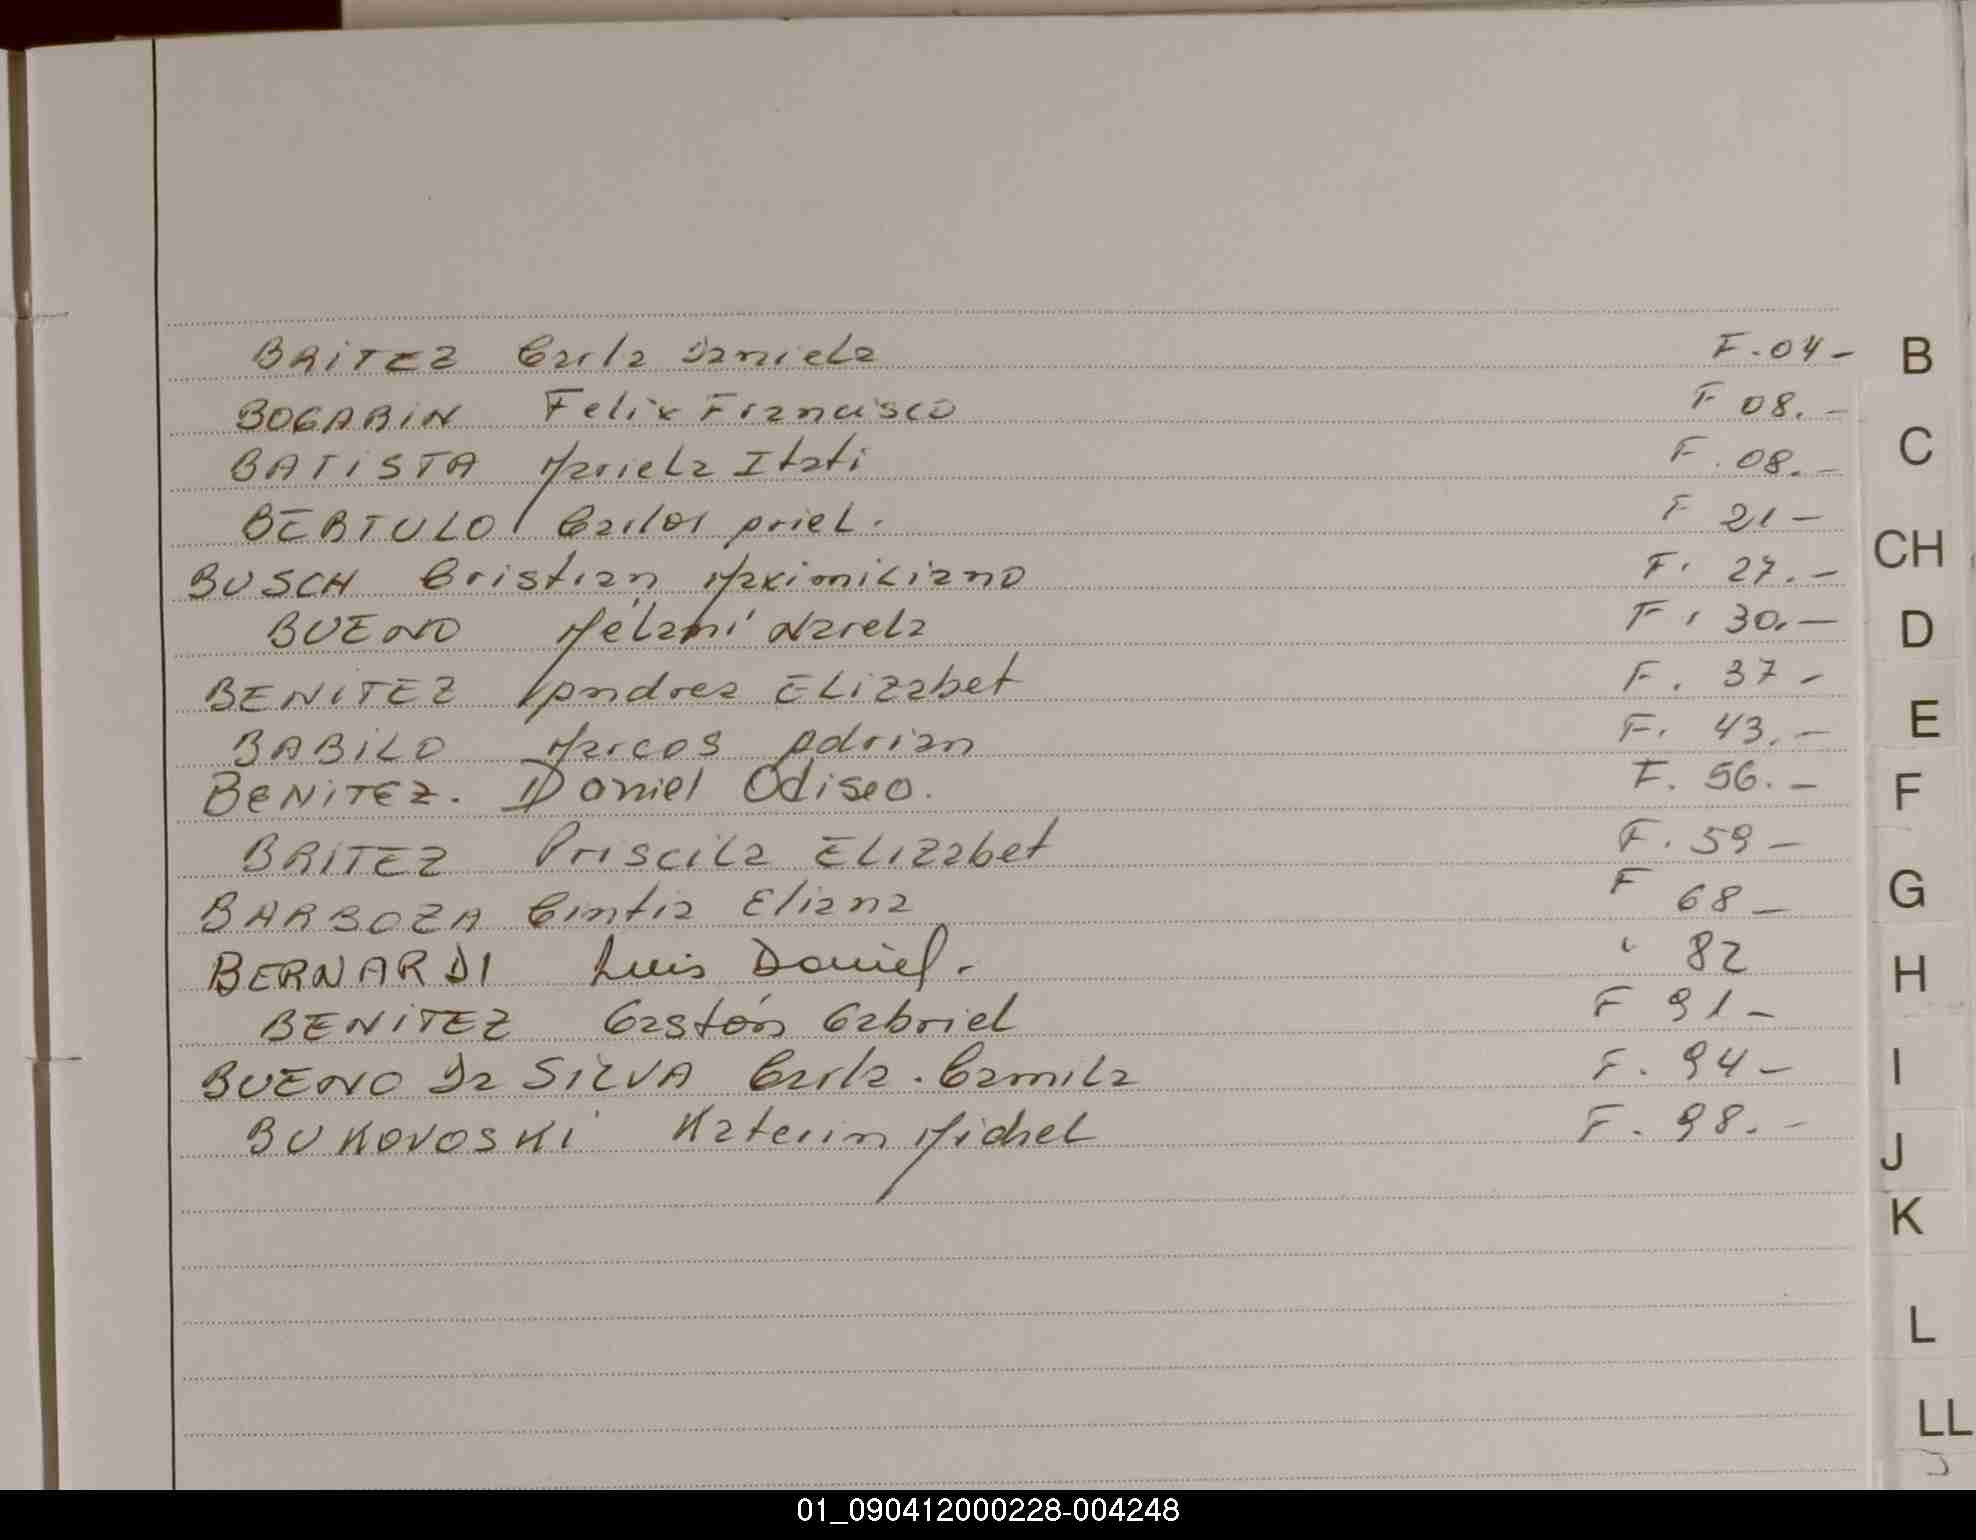 BRITEZ Carla Daniela F. 04- B
BOGARIN Felix Francisco F 08.-
BATISTA Mariela Itati F. 08.- C
BERTULO Carlos Ariel. F 21-
BUSCH Cristian Maximiliano F. 27.- CH
BUENO Mélani Narela F. 30.- D
BENITEZ Andrea Elizabet F. 37-
BABILO Marcos Adrian F. 43.- E
BENITEZ. Daniel Odiseo. F. 56.- F
BRITEZ Priscila Elizabet F. 59-
BARBOZA Cintia Eliana F 68- G
BERNARDI Luis Daniel. " 82 H
BENITEZ Gastón Gabriel F 91-
BUENO Da SILVA Carla. Camila F. 94- I
BUKOVOSKI Katerin Michel F. 98.- J
K
L
LL
01_090412000228-004248